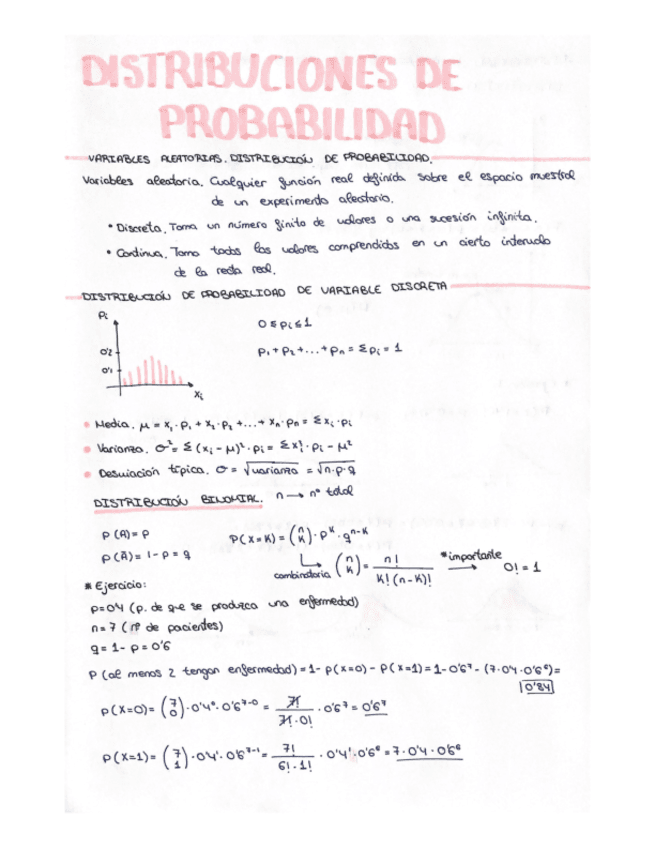 DISTRIBUCIONES DE
PROBABILIDAD
VARIABLES ALEATORIAS. DISTRIBUCIÓN DE PROBABILIDAD.
Variables aleatoria. Cualquier función real definida sobre el espacio muestral
de un experimento aleatorio.
• Discreta. Toma un número finito de valores o una sucesión infinita.
• Continua. Toma todos los valores comprendidos en un cierto intervalo
de la recta real.
DISTRIBUCIÓN DE PROBABILIDAD DE VARIABLE DISCRETA
Pi
0'2
0'1
xi
0 ≤ pi ≤ 1
p₁ + p₂ + ... + pn = Σpi = 1
• Media. μ = x₁·p₁ + x₂·p₂ + ... + xn·pn = Σxi·pi
• Varianza. σ² = Σ(xi - μ)²·pi = Σxi²·pi - μ²
• Desviación típica. σ = √varianza = √n·p·q
DISTRIBUCIÓN BINOMIAL. n → nº total
P(A) = p
P(Ā) = 1 - p = q
P(X=K) = (n K)·p^K·q^n-K
combinatoria (n K) = n! / K!(n-K)! *importante → 0! = 1
* Ejercicio:
p=0'4 (p. de que se produzca una enfermedad)
n=7 (nº de pacientes)
q = 1 - p = 0'6
P(al menos 2 tengan enfermedad) = 1 - P(x=0) - P(x=1) = 1 - 0'6⁷ - (7·0'4·0'6⁶) =
0'84
P(X=0) = (7 0)·0'4⁰·0'6⁷⁻⁰ = 7! / 7!·0! · 0'6⁷ = 0'6⁷
P(X=1) = (7 1)·0'4¹·0'6⁷⁻¹ = 7! / 6!·1! · 0'4¹·0'6⁶ = 7·0'4·0'6⁶